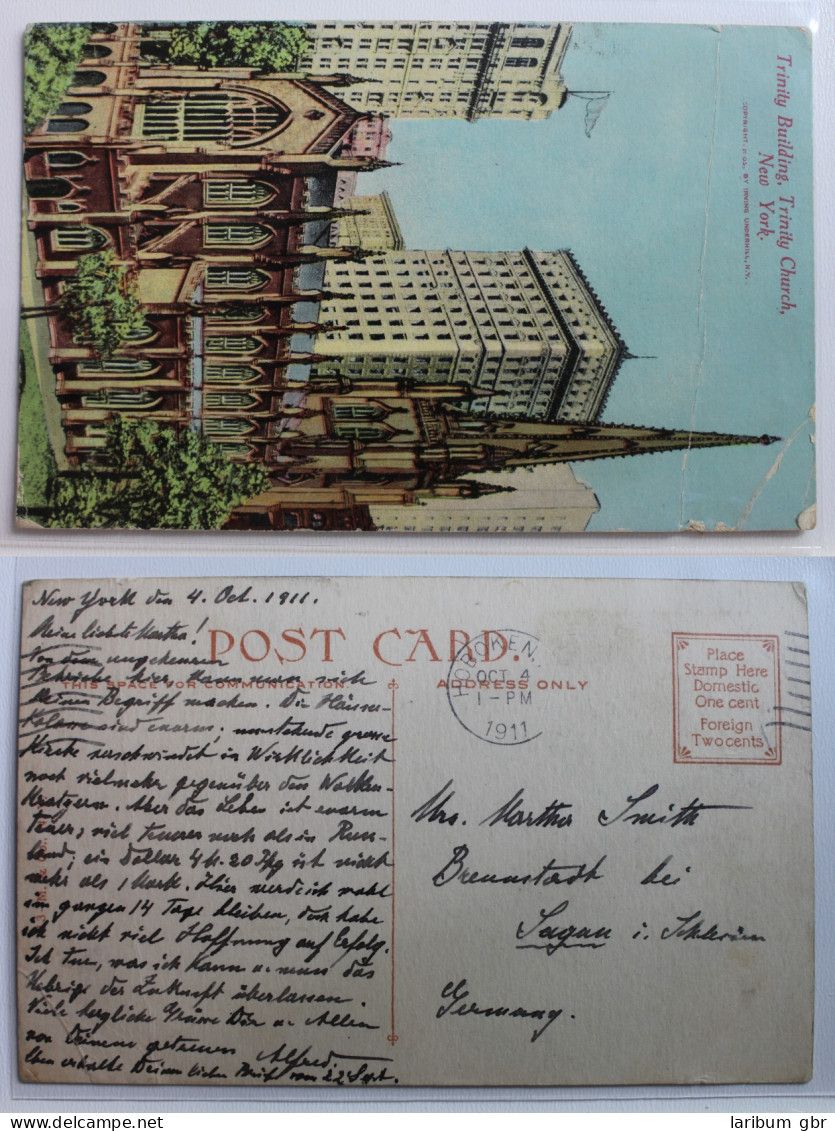 Trinity Building, Trinity Church,
New York.
BY IRVING UNDERHILL, N.Y.
New York den 4. Oct. 1911.
Meine liebste Martha!
POST CARD.
Von dem ungeheuren
hier kann man sich
THIS SPACE FOR COMMUNICATION.
ADDRESS ONLY
keinen Begriff machen. Die Häuser-
sind enorm, umstehende grosse
Kirche verschwindet in Wirklichkeit
noch vielmehr gegenüber den Wolken-
kratzern. Aber das Leben ist enorm
teuer, viel teurer noch als in Russ-
land, ein Dollar 4 M. 20 Pfg ist nicht
mehr als 1 Mark. Hier werde ich wohl
im ganzen 14 Tage bleiben, doch habe
ich nicht viel Hoffnung auf Erfolg.
Ich tue, was ich kann u. muss das
Uebrige der Zukunft überlassen.
Viele herzliche Grüsse Dir u. Allen
von Deinem getreuen Alfred.
Eben erhalte Deinen lieben Brief vom 22 Sept.
HOBOKEN,
OCT 4
1-PM
1911
Place
Stamp Here
Domestic
One cent
Foreign
Two cents
Mrs. Martha Smith
Brennstadt bei
Sagan i. Schlesien
Germany.
laribum gbr